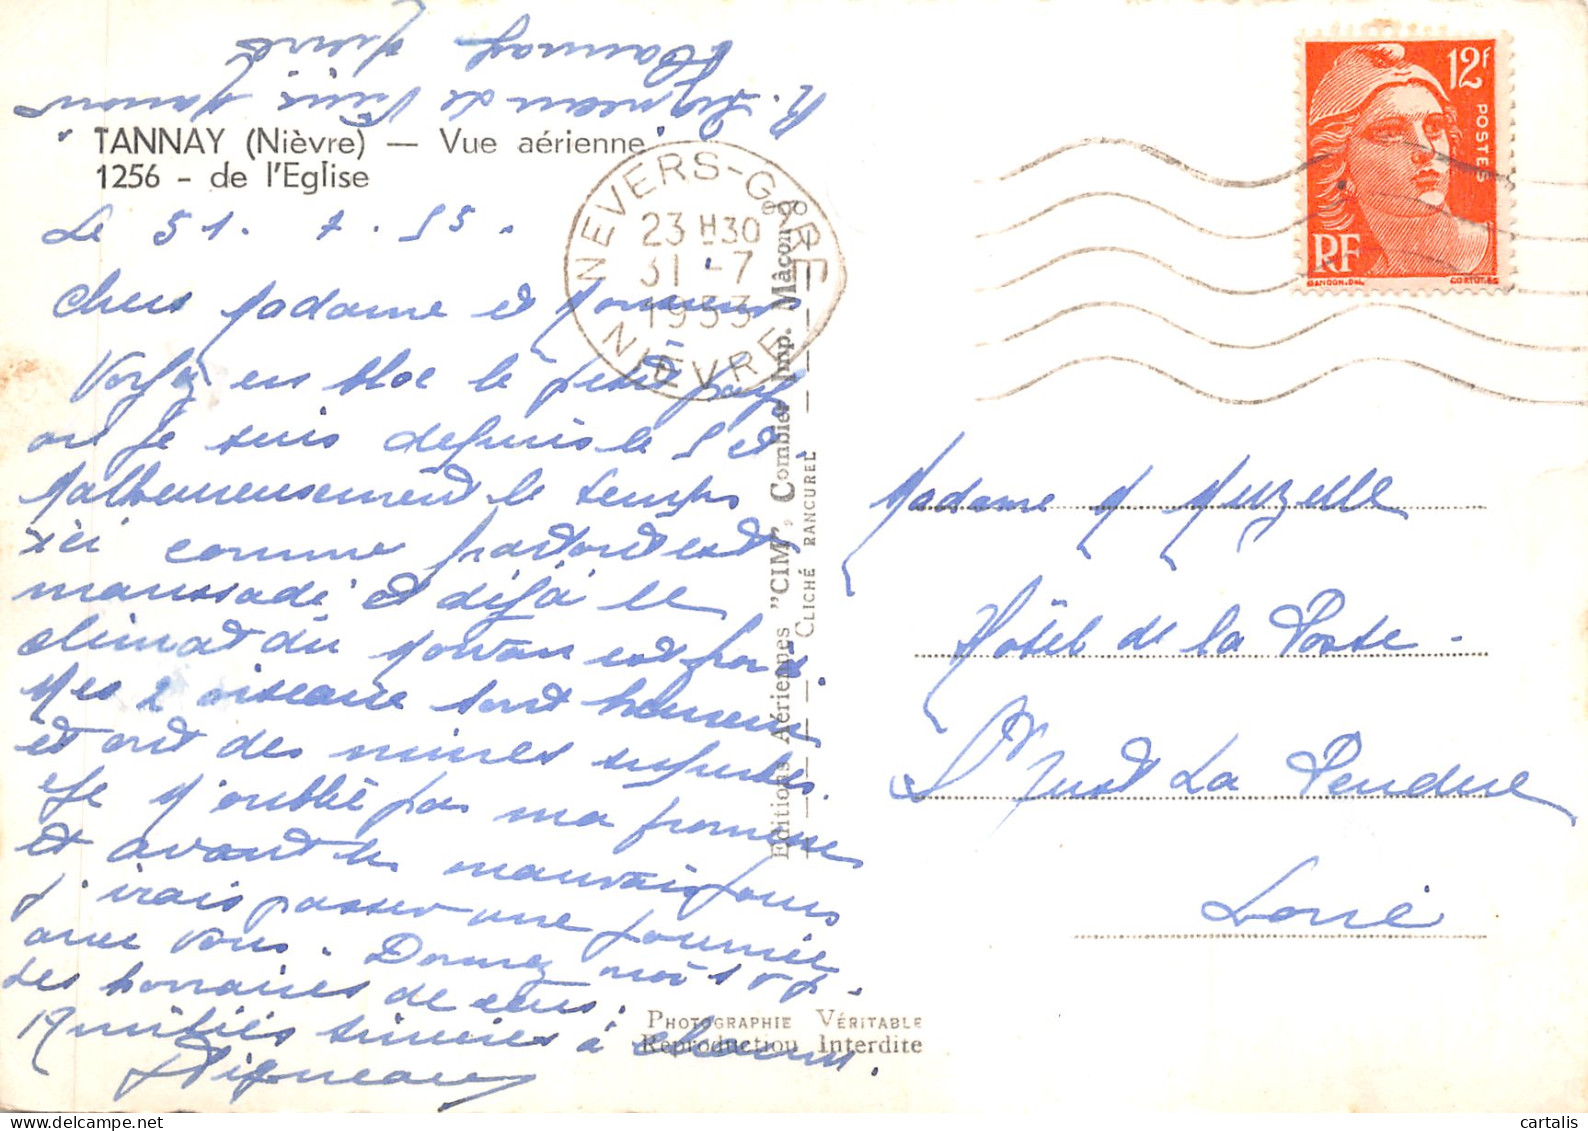 R. Ligneau de Vieux Manoir
Tannay Nièvre
TANNAY (Nièvre) — Vue aérienne
1256 - de l'Eglise
Le 31. 7. 53.
Chers Madame et Monsieur
Voyez en bloc le petit pays
où je suis depuis le 5 et
Malheureusement le temps
ici comme partout est
maussade et déjà le
climat du Morvan est froid.
Mes 2 oiseaux sont heureux
et ont des mines superbes.
Je n'oublie pas ma promesse
et avant les mauvais jours
j'irais passer une journée
avec vous. Donnez moi s v p.
les horaires de cars.
Amitiés sincères à chacun.
Ligneau
NEVERS-GARE
23 H30
31 -7
1953
NIÈVRE
Editions Aériennes "CIM", Combier Imp. Mâcon
CLICHÉ RANCUREL
PHOTOGRAPHIE VÉRITABLE
Reproduction Interdite
12F
POSTES
RF
GANDON.DEL
CORTOT.SC
Madame M Muzelle
Hôtel de la Poste -
St Just La Pendue
Loire
cartalis
www.delcampe.net